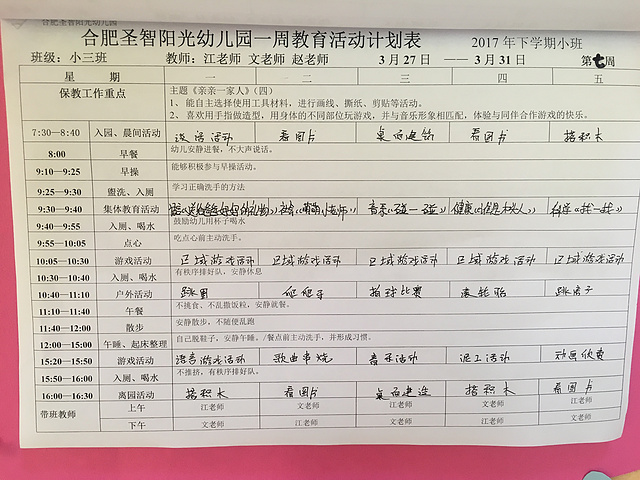 合肥圣智阳光幼儿园
合肥圣智阳光幼儿园一周教育活动计划表 2017年下学期小班
班级：小三班 教师：江老师 文老师 赵老师 3月27日 ——3月31日 第七周
星 期 一 二 三 四 五
保教工作重点 主题《亲亲一家人》（四）
1、能自主选择使用工具材料，进行画线、撕纸、剪贴等活动。
2、喜欢用手指做造型，用身体的不同部位玩游戏，并与音乐形象相匹配，体验与同伴合作游戏的快乐。
7:30—8:40 入园、晨间活动 活动 看图片 桌面建筑 看图书 搭积木
8:00 早餐 幼儿安静进餐，不大声说话。
9:10—9:25 早操 能够积极参与早操活动。
9:25—9:30 盥洗、入厕 学习正确洗手的方法
9:30—9:40 集体教育活动 音乐《碰一碰》 健康《木头人》 科学《找一找》
9:40—9:55 入厕、喝水 鼓励幼儿用杯子喝水
9:55—10:05 点心 吃点心前主动洗手。
10:05—10:30 游戏活动 区域游戏活动 区域游戏活动 区域游戏活动 区域游戏活动 区域游戏活动
10:30—10:40 入厕、喝水 有秩序排好队，安静休息
10:40—11:10 户外活动 跳圈 拍球比赛 滚轮胎
11:10—11:40 午餐 不挑食、不乱撒饭粒，安静就餐。
11:40—12:00 散步 安静散步，不随便乱跑
12:00—15:00 午睡、起床整理 自己脱鞋子，安静午睡。/餐点前主动洗手，并形成习惯。
15:20—15:50 游戏活动 语言游戏活动 歌曲串烧 音乐活动 泥工活动 动画欣赏
15:50—16:00 入厕、喝水 不推挤，有秩序排好队。
16:00—16:30 离园活动 搭积木 看图片 桌面建造 搭积木 看图片
带班教师 上午 江老师 文老师 江老师 文老师 江老师
下午 文老师 江老师 文老师 江老师 文老师